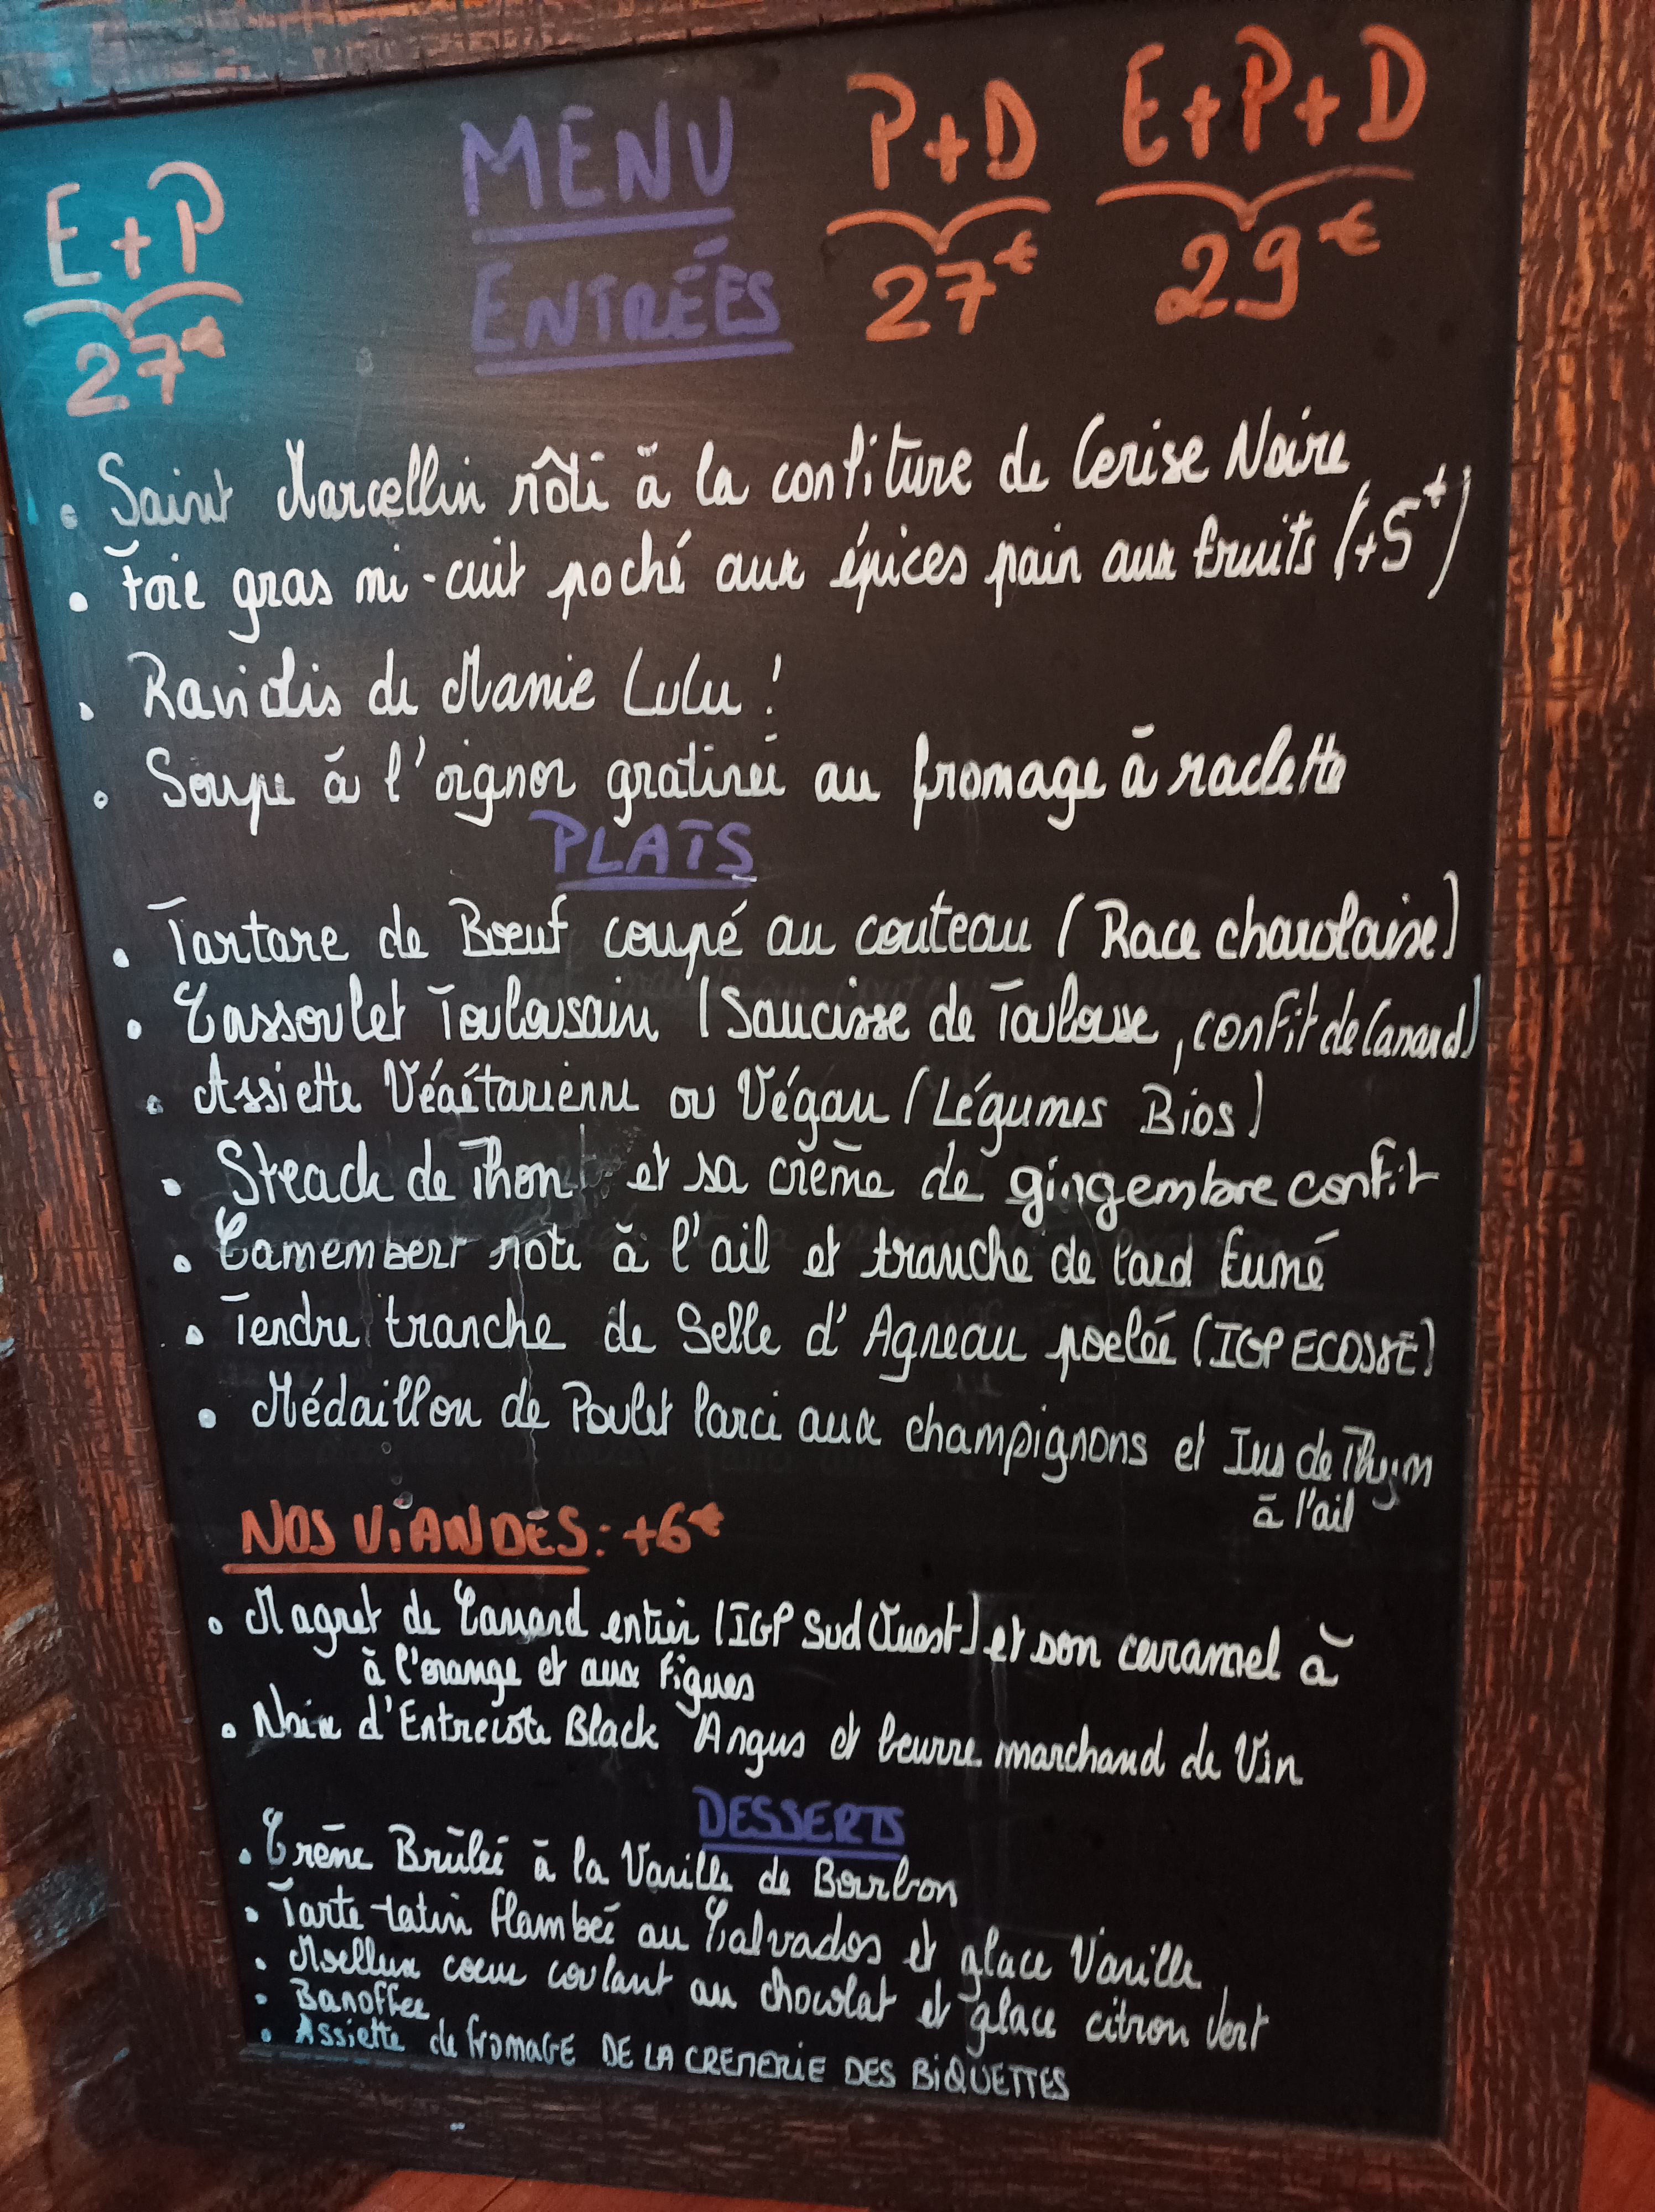 MENU
P+D
E+P+D
E+P
27€
27€
29€
ENTRÉES
• Saint Marcellin rôti à la confiture de Cerise Noire
• Foie gras mi-cuit poché aux épices pain aux fruits (+5€)
• Raviolis de Mamie Lulu !
• Soupe à l'oignon gratinée au fromage à raclette
PLATS
• Tartare de Bœuf coupé au couteau (Race charolaise)
• Cassoulet Toulousain (Saucisse de Toulouse, confit de Canard)
• Assiette Végétarienne ou Végan (Légumes Bios)
• Steack de Thon et sa crème de gingembre confit
• Camembert roti à l'ail et tranche de lard fumé
• Tendre tranche de Selle d'Agneau poelée (IGP ECOSSE)
• Médaillon de Poulet farci aux champignons et Jus de Thym
à l'ail
NOS VIANDES : +6€
• Magret de Canard entier (IGP Sud Ouest) et son caramel à
à l'orange et aux Figues
• Noix d'Entrecôte Black Angus et beurre marchand de Vin
DESSERTS
• Crème Brûlée à la Vanille de Bourbon
• Tarte-tatin flambée au Calvados et glace Vanille
• Moelleux coeur coulant au chocolat et glace citron Vert
• Banoffee
• Assiette de fromage DE LA CREMERIE DES BIQUETTES